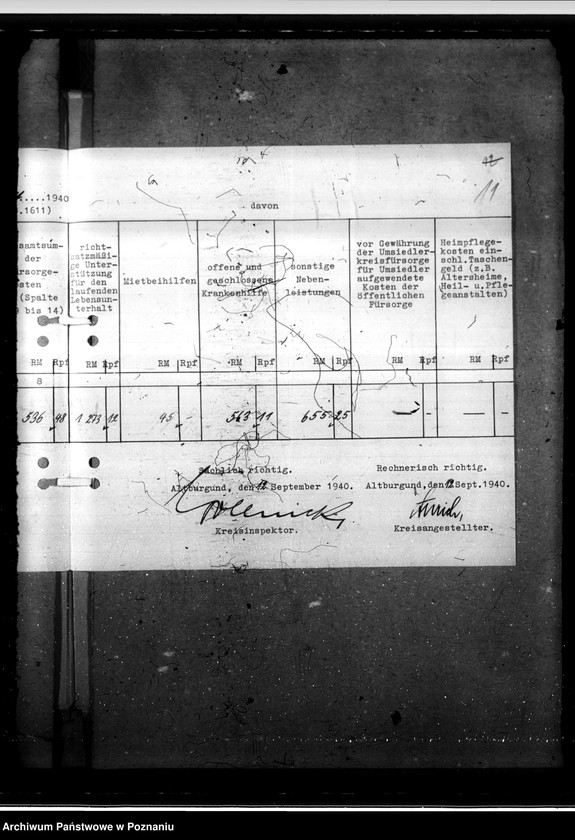 12
11
....1940
.1611)
davon
samtsum-
der
rsorge-
sten
(Spalte
9 bis 14)
richt-
satzmäßi-
ge Unter-
stützung
für den
laufenden
Lebensun-
terhalt
Mietbeihilfen
offene und
geschlossene
Krankenhilfe
sonstige
Neben-
leistungen
vor Gewährung
der Umsiedler-
kreisfürsorge
für Umsiedler
aufgewendete
Kosten der
öffentlichen
Fürsorge
Heimpflege-
kosten ein-
schl.Taschen-
geld (z.B.
Altersheime,
Heil- u.Pfle-
geanstalten)
RM Rpf RM Rpf RM Rpf RM Rpf RM Rpf RM Rpf RM Rpf
8
536 98 1 273 12 45 - 563 11 655 25 - - - -
Sachlich richtig.
Altburgund, den 12 September 1940.
Kreisinspektor.
Rechnerisch richtig.
Altburgund,den 12 Sept.1940.
Kreisangestellter.
Archiwum Państwowe w Poznaniu